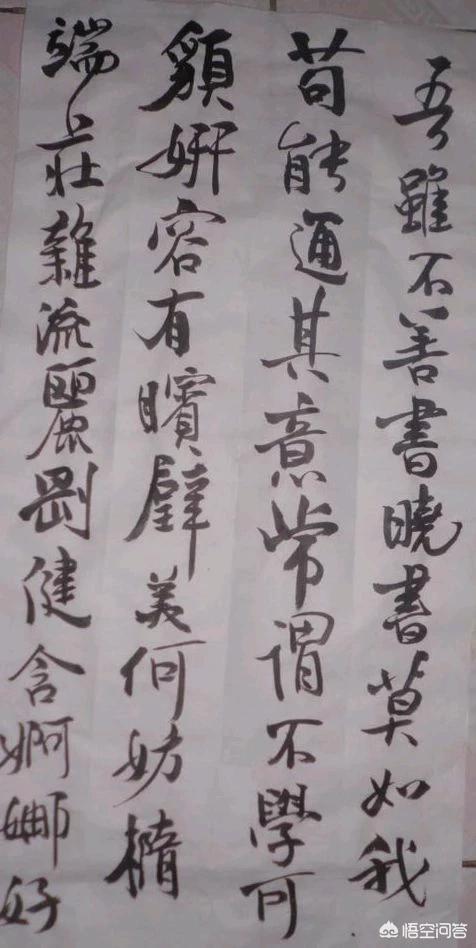 吾雖不善書曉書莫如我
苟能通其意常謂不學可
貌妍容有矉璧美何妨橢
端莊雜流麗剛健含婀娜好
悟空问答